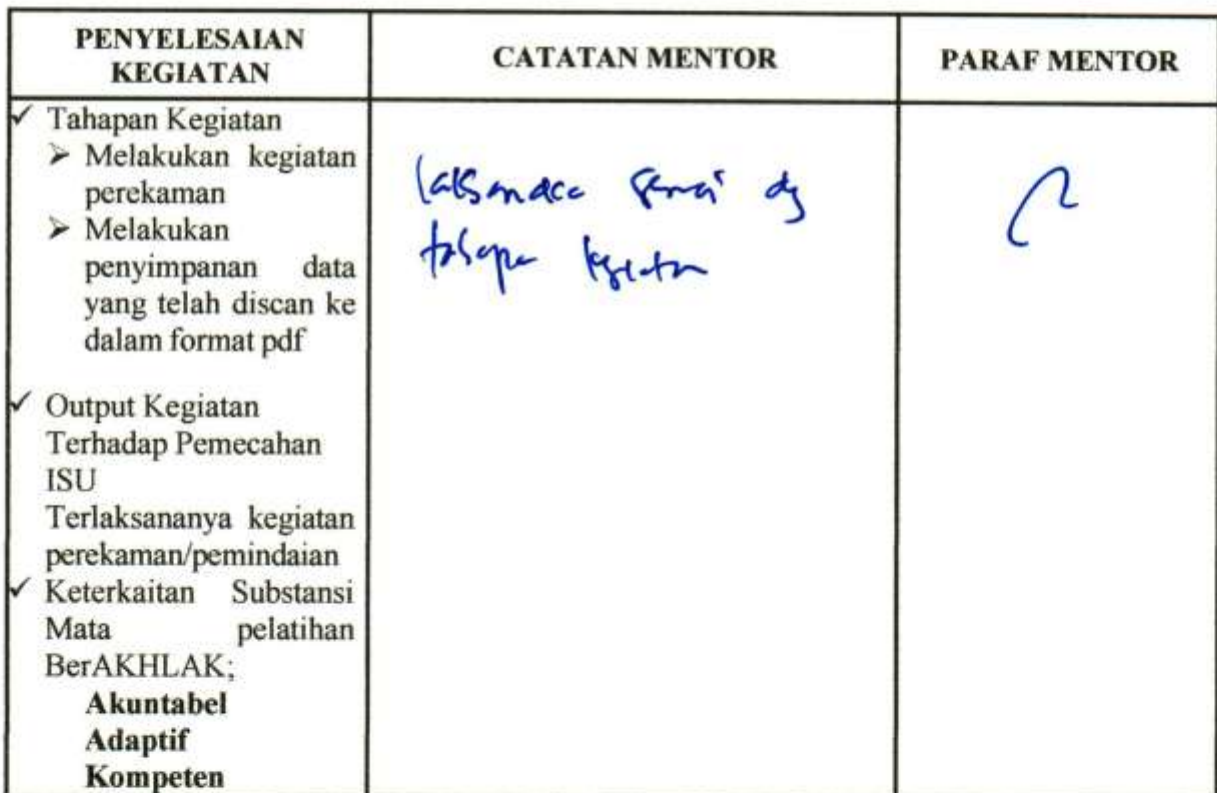 PENYELESAIAN
KEGIATAN
CATATAN MENTOR
PARAF MENTOR
✓ Tahapan Kegiatan
➢ Melakukan kegiatan
perekaman
➢ Melakukan
penyimpanan data
yang telah discan ke
dalam format pdf
✓ Output Kegiatan
Terhadap Pemecahan
ISU
Terlaksananya kegiatan
perekaman/pemindaian
✓ Keterkaitan Substansi
Mata pelatihan
BerAKHLAK;
Akuntabel
Adaptif
Kompeten
dg